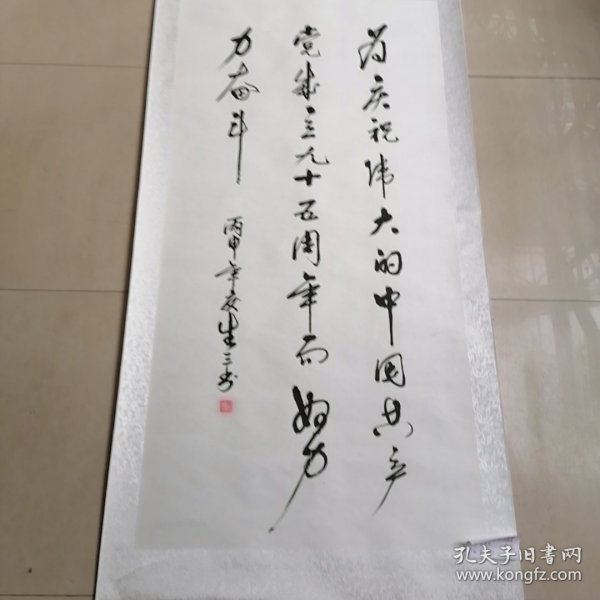 为庆祝伟大的中国共产
党成立九十五周年而努
力奋斗
丙申年生三书
孔夫子旧书网
www.kongfz.com